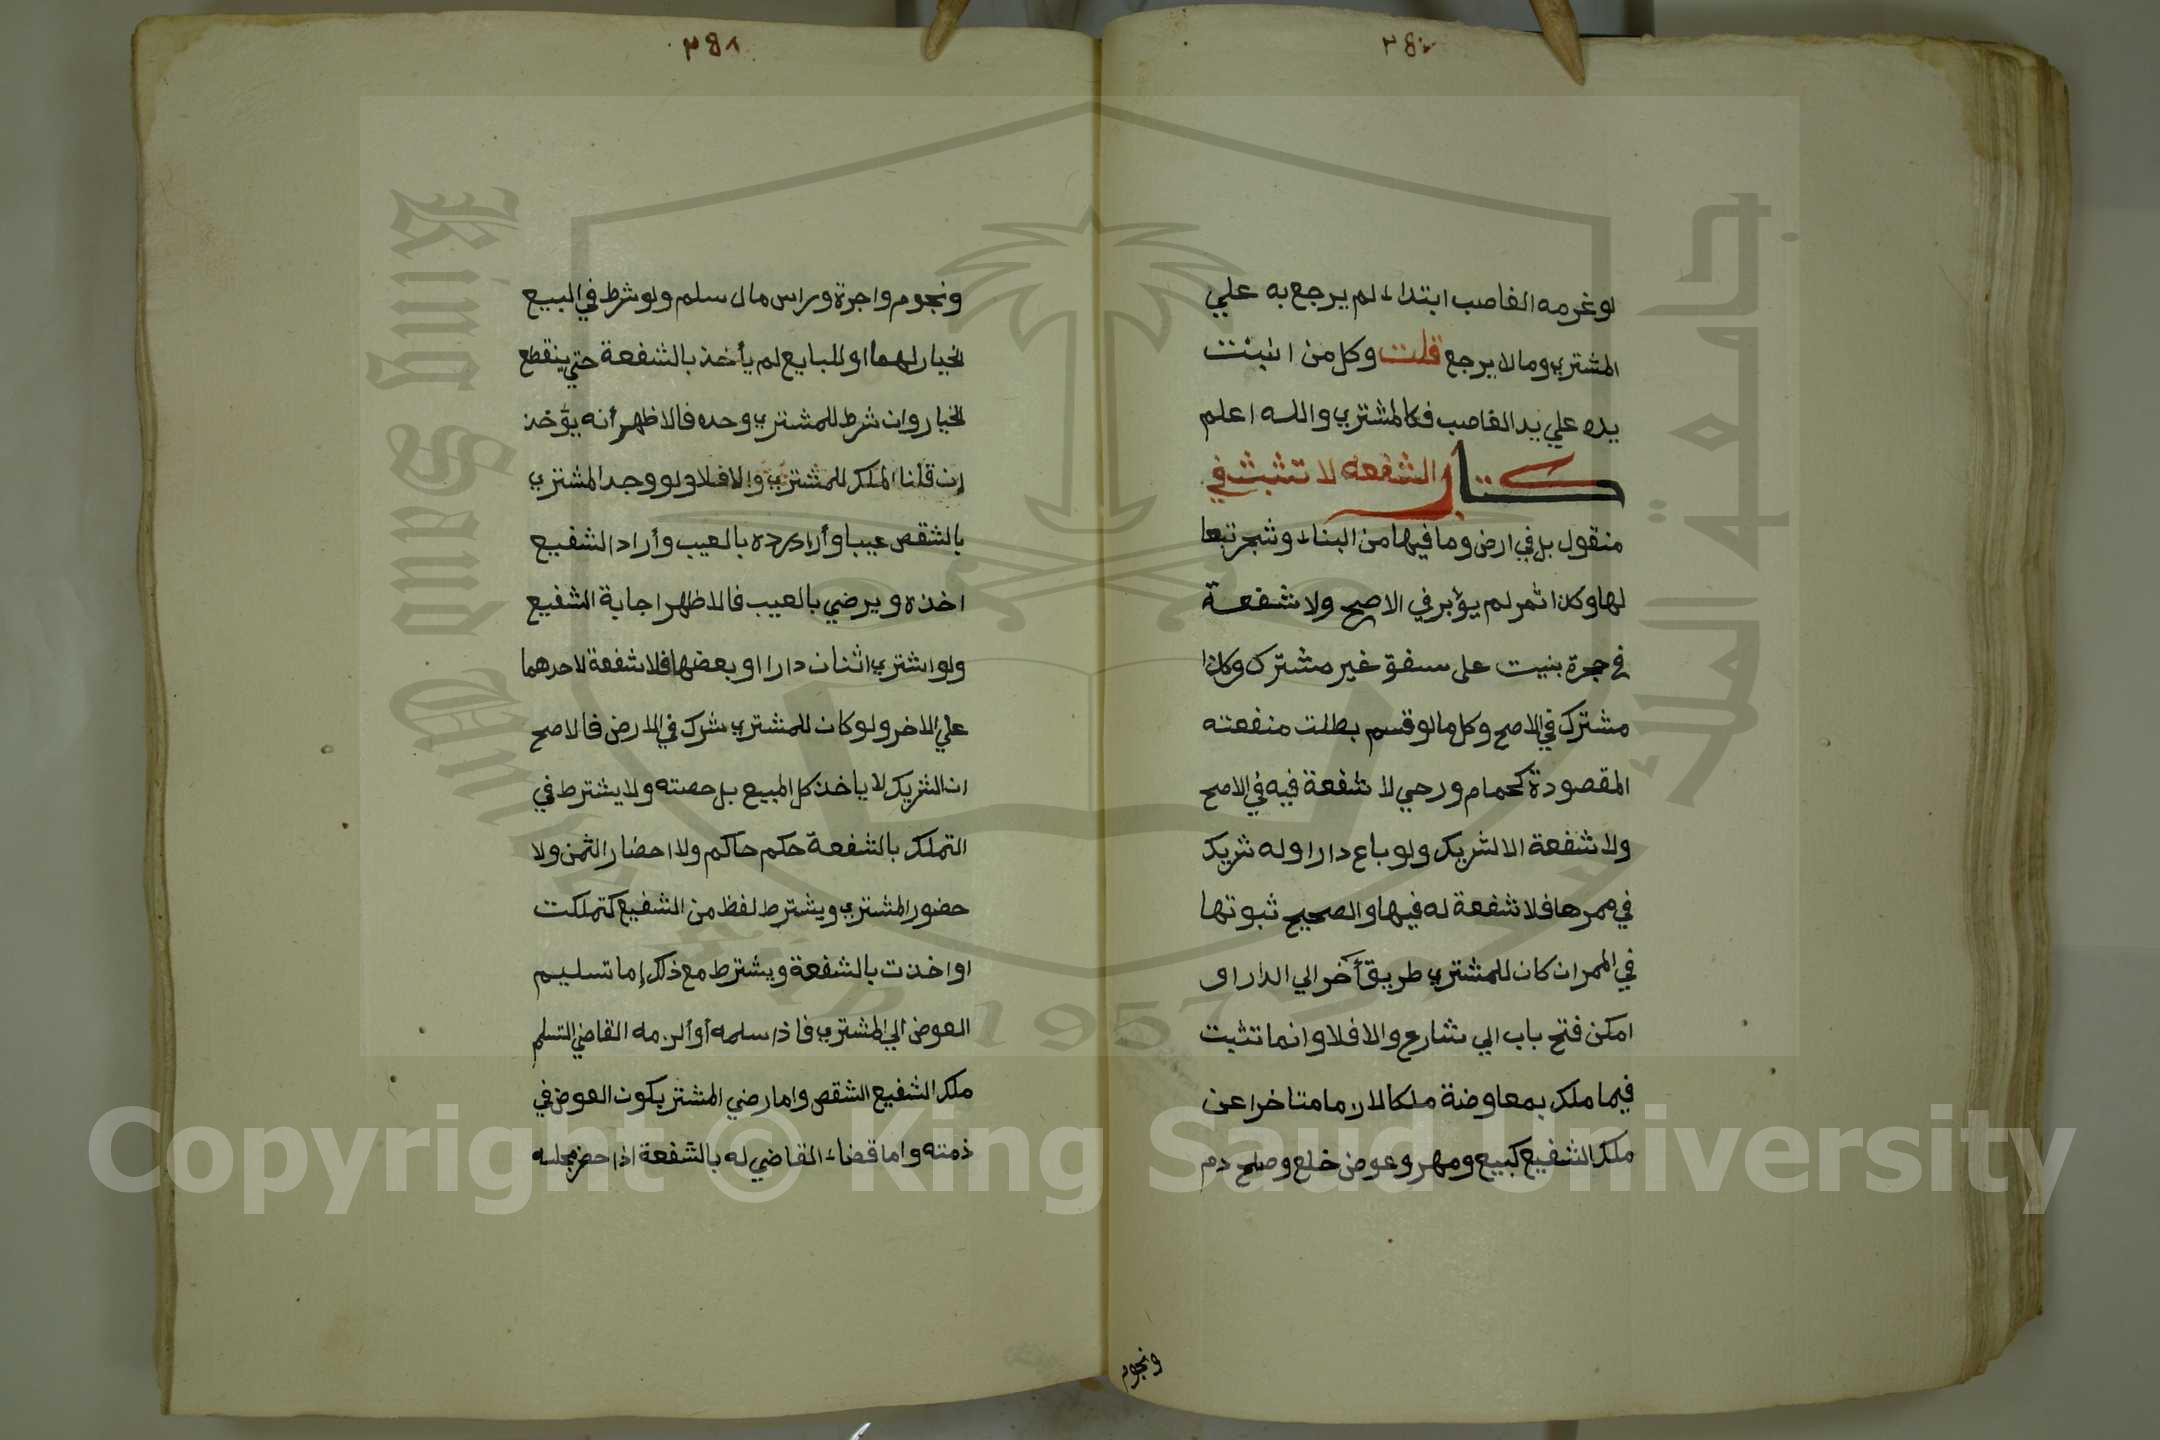 لو غرمه الغاصب ابتداء لم يرجع به علي
المشتري وما لا يرجع قلت وكل من انبنت
يده علي يد الغاصب فكالمشتري والله اعلم
كتاب الشفعه لا تثبت في
منقول بل في ارض وما فيها من البناء وشجر تبعا
لها وكذا ثمر لم يؤبر في الاصح ولا شفعة
في حجرة بنيت على سقف غير مشترك وكذا
مشترك في الاصح وكل ما لو قسم بطلت منفعته
المقصودة كحمام ورحي لا شفعة فيه في الاصح
ولا شفعة الا لشريك ولو باع دارا وله شريك
في ممرها فلا شفعة له فيها والصحيح ثبوتها
في الممر ان كان للمشتري طريق آخر الي الدار او
امكن فتح باب الي شارع والا فلا وانما تثبت
فيما ملك بمعاوضة ملكا لازما متاخرا عن
ملك الشفيع كبيع ومهر وعوض خلع وصلح دم
ونجوم
٣٤٨
ونجوم واجرة وراس مال سلم ولو شرط في البيع
الخيار لهما او للبايع لم يأخذ بالشفعة حتي ينقطع
الخيار وان شرط للمشتري وحده فالاظهر أنه يؤخذ
إن قلنا الملك للمشتري وإلا فلا ولو وجد المشتري
بالشقص عيبا وأراد رده بالعيب وأراد الشفيع
اخذه ويرضي بالعيب فالاظهر اجابة الشفيع
ولو اشتري اثنان دارا او بعضها فلا شفعة لاحدهما
علي الاخر ولو كان للمشتري شرك في الارض فالاصح
ان الشريك لا ياخذ كل المبيع بل حصته ولا يشترط في
التملك بالشفعة حكم حاكم ولا احضار الثمن ولا
حضور المشتري ويشترط لفظ من الشفيع كتملكت
او اخذت بالشفعة ويشترط مع ذلك إما تسليم
العوض الي المشتري فاذا سلمه أو ألزمه القاضي التسلم
ملك الشفيع الشقص واما رضي المشتر بكون العوض في
ذمته واما قضاء القاضي له بالشفعة اذا حضر مجلسه
جامعة الملك سعود
King Saud University
1957
Copyright © King Saud University